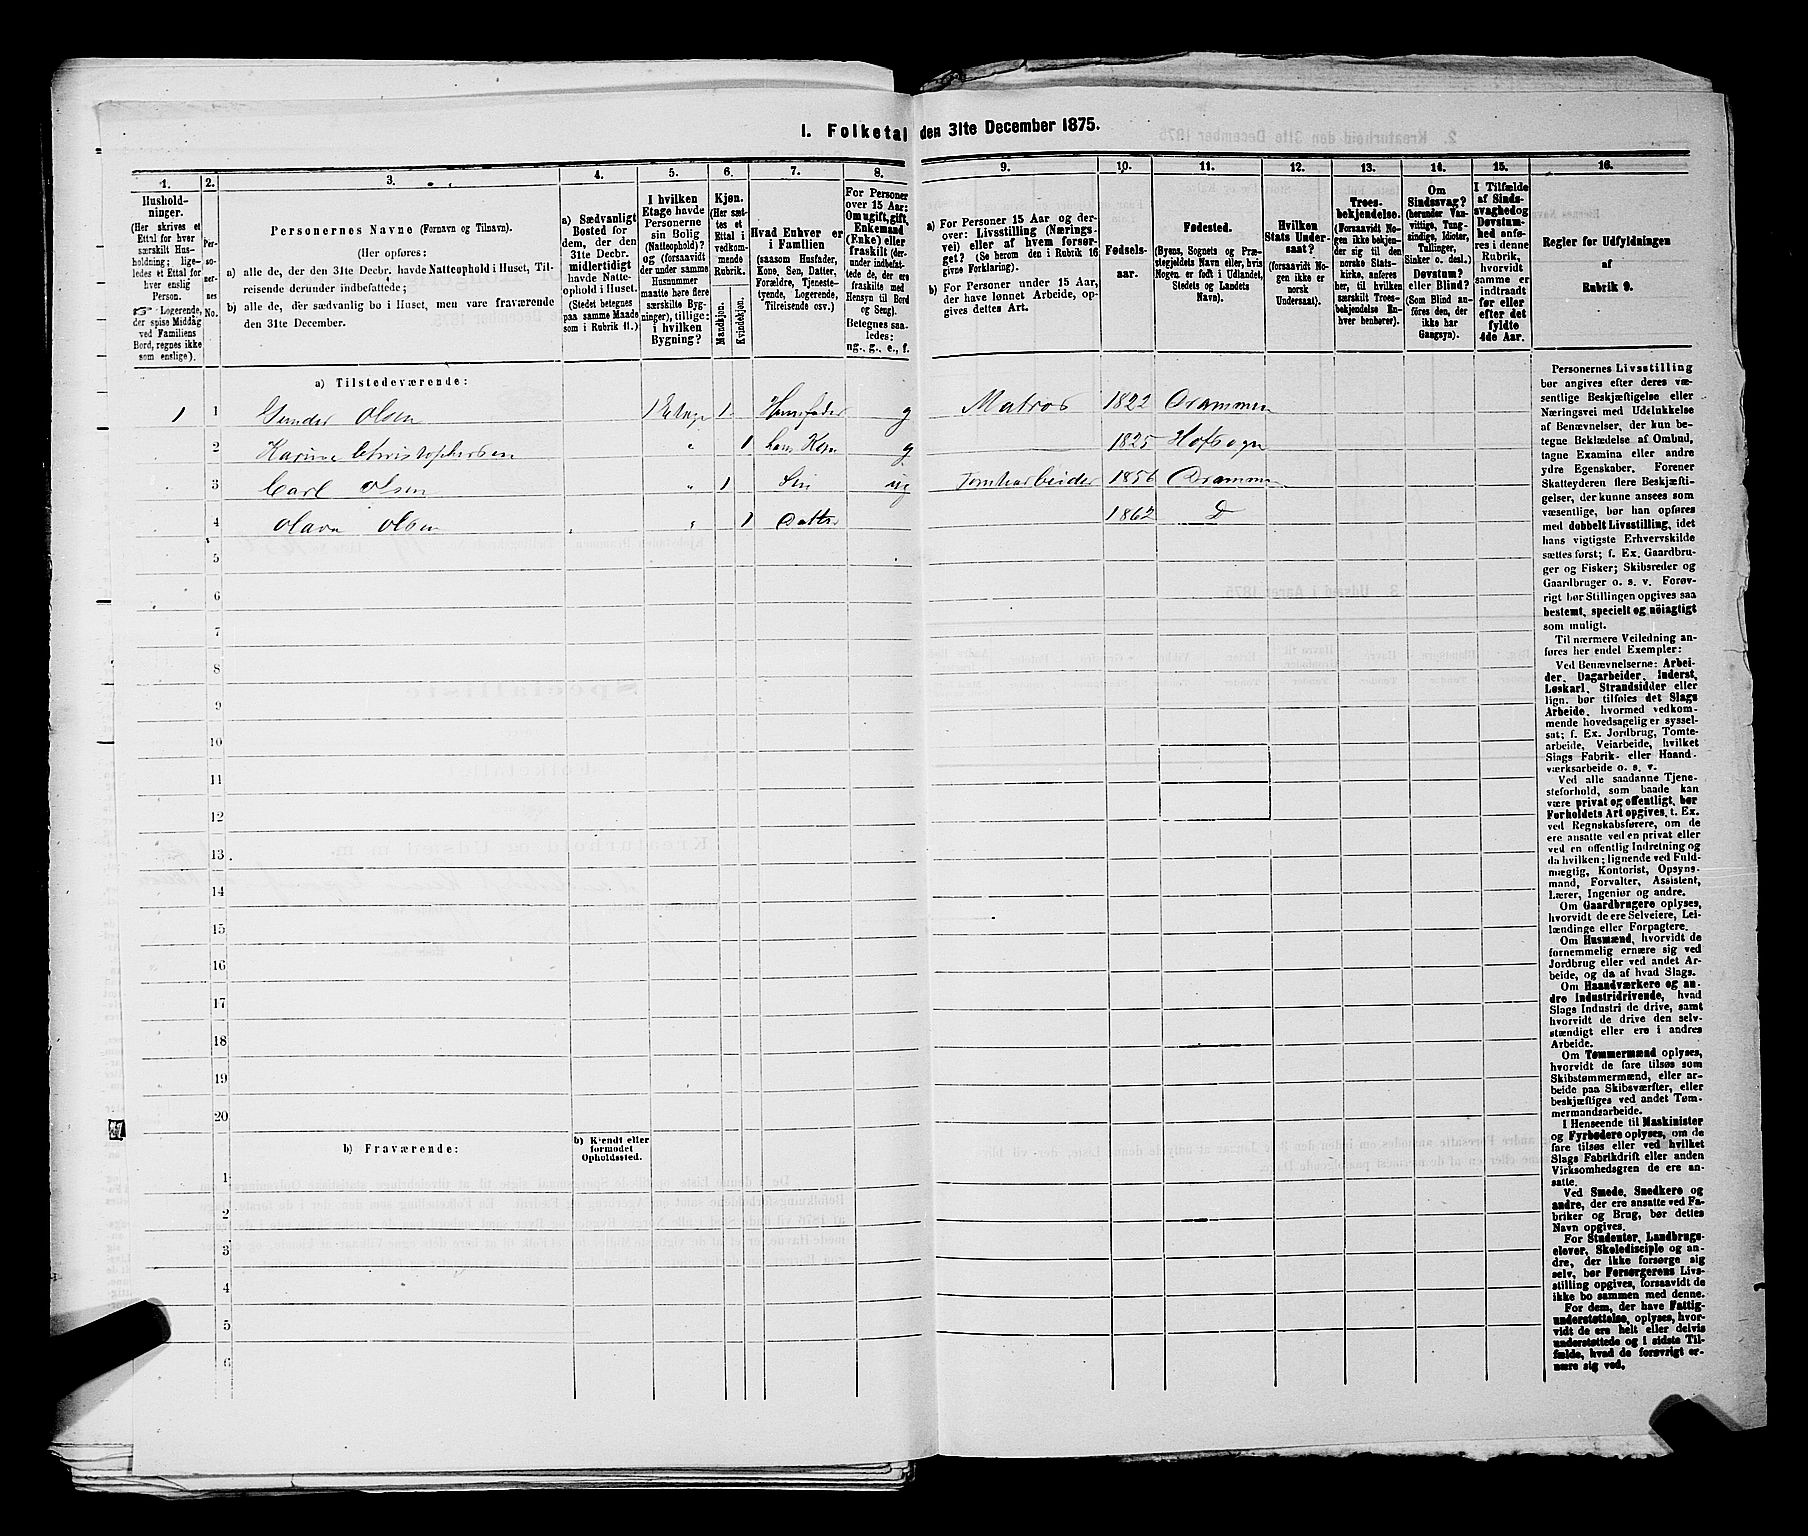 1. Folketal den 31te December 1875.
1.
Hushold-
ninger.
(Her skrives et
Ettal for hver
særskilt Hus-
holdning; lige-
ledes et Ettal for
hver enslig
Person.
☞ Logerende,
der spise Middag
ved Familiens
Bord, regnes ikke
som enslige).
2.
Per-
so-
ner-
nes
No.
3.
Personernes Navne (Fornavn og Tilnavn).
(Her opføres:
a) alle de, der den 31te Decbr. havde Natteophold i Huset, Til-
reisende derunder indbefattede;
b) alle de, der sædvanlig bo i Huset, men vare fraværende
den 31te December.
4.
a) Sædvanligt
Bosted for
dem, der den
31te Decbr.
midlertidigt
havde Natte-
ophold i Huset.
(Stedet betegnes
paa samme Maade
som i Rubrik 11.)
5.
I hvilken
Etage havde
Personerne
sin Bolig
(Natteophold)?
og (forsaavidt
der under samme
Husnummer
maatte høre flere
særskilte Byg-
ninger), tillige:
i hvilken
Bygning?
6.
Kjøn.
(Her sæt-
tes et
Ettal i
vedkom-
mende
Rubrik.
Mandkjøn.
Kvindekjøn.
7.
Hvad Enhver er
i Familien
(saasom Husfader,
Kone, Søn, Datter,
Forældre, Tjeneste-
tyende, Logerende,
Tilreisende osv.)
8.
For Personer
over 15 Aar:
Om ugift, gift,
Enkemand
(Enke) eller
fraskilt (der-
under indbefat-
tede de, der ere
fraskilte med
Hensyn til Bord
og Seng).
Betegnes saa-
ledes:
ug., g., e., f.
9.
a) For Personer 15 Aar og der-
over: Livsstilling (Nærings-
vei) eller af hvem forsør-
get? (Se herom den i Rubrik 16
givne Forklaring).
b) For Personer under 15 Aar,
der have lønnet Arbeide, op-
gives dettes Art.
10.
Fødsels-
aar.
11.
Fødested.
(Byens, Sognets og Præ-
stegjeldets Navn eller, hvis
Nogen er født i Udlandet,
Stedets og Landets
Navn).
12.
Hvilken
Stats Under-
saat?
(forsaavidt No-
gen ikke er
norsk
Undersaat).
13.
Troes-
bekjendelse.
(Forsaavidt No-
gen ikke bekjen-
der sig til den
norske Stats-
kirke, anføres
her, til hvilken
særskilt Troes-
bekjendelse En-
hver henhører).
14.
Om
Sindssvag?
(herunder Van-
vittige, Tung-
sindige, Idioter,
Tullinger,
Sinker o. desl.)
Døvstum?
eller Blind?
(Som Blind an-
føres den, der
ikke har
Gangsyn).
15.
I Tilfælde
af Sinds-
svaghed og
Døvstum-
hed anfø-
res i denne
Rubrik,
hvorvidt
samme er
indtraadt
før eller
efter det
fyldte
4de Aar.
16.
Regler for Udfyldningen
af
Rubrik 9.
a) Tilstedeværende:
1 1 Gunder Olsen 1 Etage 1 Husfader g Matros 1822 Drammen
2 Karine Christophersen " 1 hans Kone g 1825 Hofsogn
3 Carl Olsen " 1 Søn ug Tomtearbeider 1856 Drammen
4 Olava Olsen " 1 Datter 1862 D
5
6
7
8
9
10
11
12
13
14
15
16
17
18
19
20
b) Fraværende:
b) Kjendt eller
formodet
Opholdssted.
1
2
3
4
5
6
Personernes Livsstilling
bør angives efter deres væ-
sentlige Beskjæftigelse eller
Næringsvei med Udelukkelse
af Benævnelser, der kun be-
tegne Beklædelse af Ombud,
tagne Examina eller andre
ydre Egenskaber. Forener
Skatteyderen flere Beskjæfti-
gelser, der kunne ansees som
væsentlige, bør han opføres
med dobbelt Livsstilling, idet
hans vigtigste Erhvervskilde
sættes først; f. Ex. Gaardbru-
ger og Fisker; Skibsreder og
Gaardbruger o. s. v. Forøv-
rigt bør Stillingen opgives saa
bestemt, specielt og nøiagtigt
som muligt.
Til nærmere Veiledning an-
føres her endel Exempler:
Ved Benævnelserne: Arbei-
der, Dagarbeider, Inderst,
Løskarl, Strandsidder eller
lign. bør tilføies det Slags
Arbeide, hvormed vedkom-
mende hovedsagelig er syssel-
sat; f. Ex. Jordbrug, Tomte-
arbeide, Veiarbeide, hvilket
Slags Fabrik- eller Haand-
værksarbeide o. s. v.
Ved alle saadanne Tjene-
steforhold, som baade kan
være privat og offentligt, bør
Forholdets Art opgives, t. Ex.
ved Regnskabsførere, om de
ere ansatte ved en privat eller
ved en offentlig Indretning og
da hvilken; lignende ved Fuld-
mægtig, Kontorist, Opsyns-
mand, Forvalter, Assistent,
Lærer, Ingeniør og andre.
Om Gaardbrugere oplyses,
hvorvidt de ere Selveiere, Lei-
lændinge eller Forpagtere.
Om Husmænd, hvorvidt de
fornemmelig ernære sig ved
Jordbrug eller ved andet Ar-
beide, og da af hvad Slags.
Om Haandværkere og an-
dre Industridrivende, hvad
Slags Industri de drive, samt
hvorvidt de drive den selv-
stændigt eller ere i andres
Arbeide.
Om Tømmermænd oplyses,
hvorvidt de fare tilsøs som
Skibstømmermænd, eller ar-
beide paa Skibsværfter, eller
beskjæftiges ved andet Tøm-
mermandsarbeide.
I Henseende til Maskinister
og Fyrbødere oplyses, om de
fare tilsøs eller ved hvilket
Slags Fabrikdrift eller anden
Virksomhedsgren de ere an-
satte.
Ved Smede, Snedkere og
andre, der ere ansatte ved Fa-
briker og Brug, bør dettes
Navn opgives.
For Studenter, Landbrugs-
elever, Skoledisciple og an-
dre, der ikke forsørge sig
selv, bør Forsørgerens Livs-
stilling opgives, forsaavidt de
ikke bo sammen med denne.
For dem, der have Fattig-
understøttelse, oplyses, hvor-
vidt de ere helt eller delvis
understøttede og i sidste Til-
fælde, hvad de forøvrigt er-
nære sig ved.